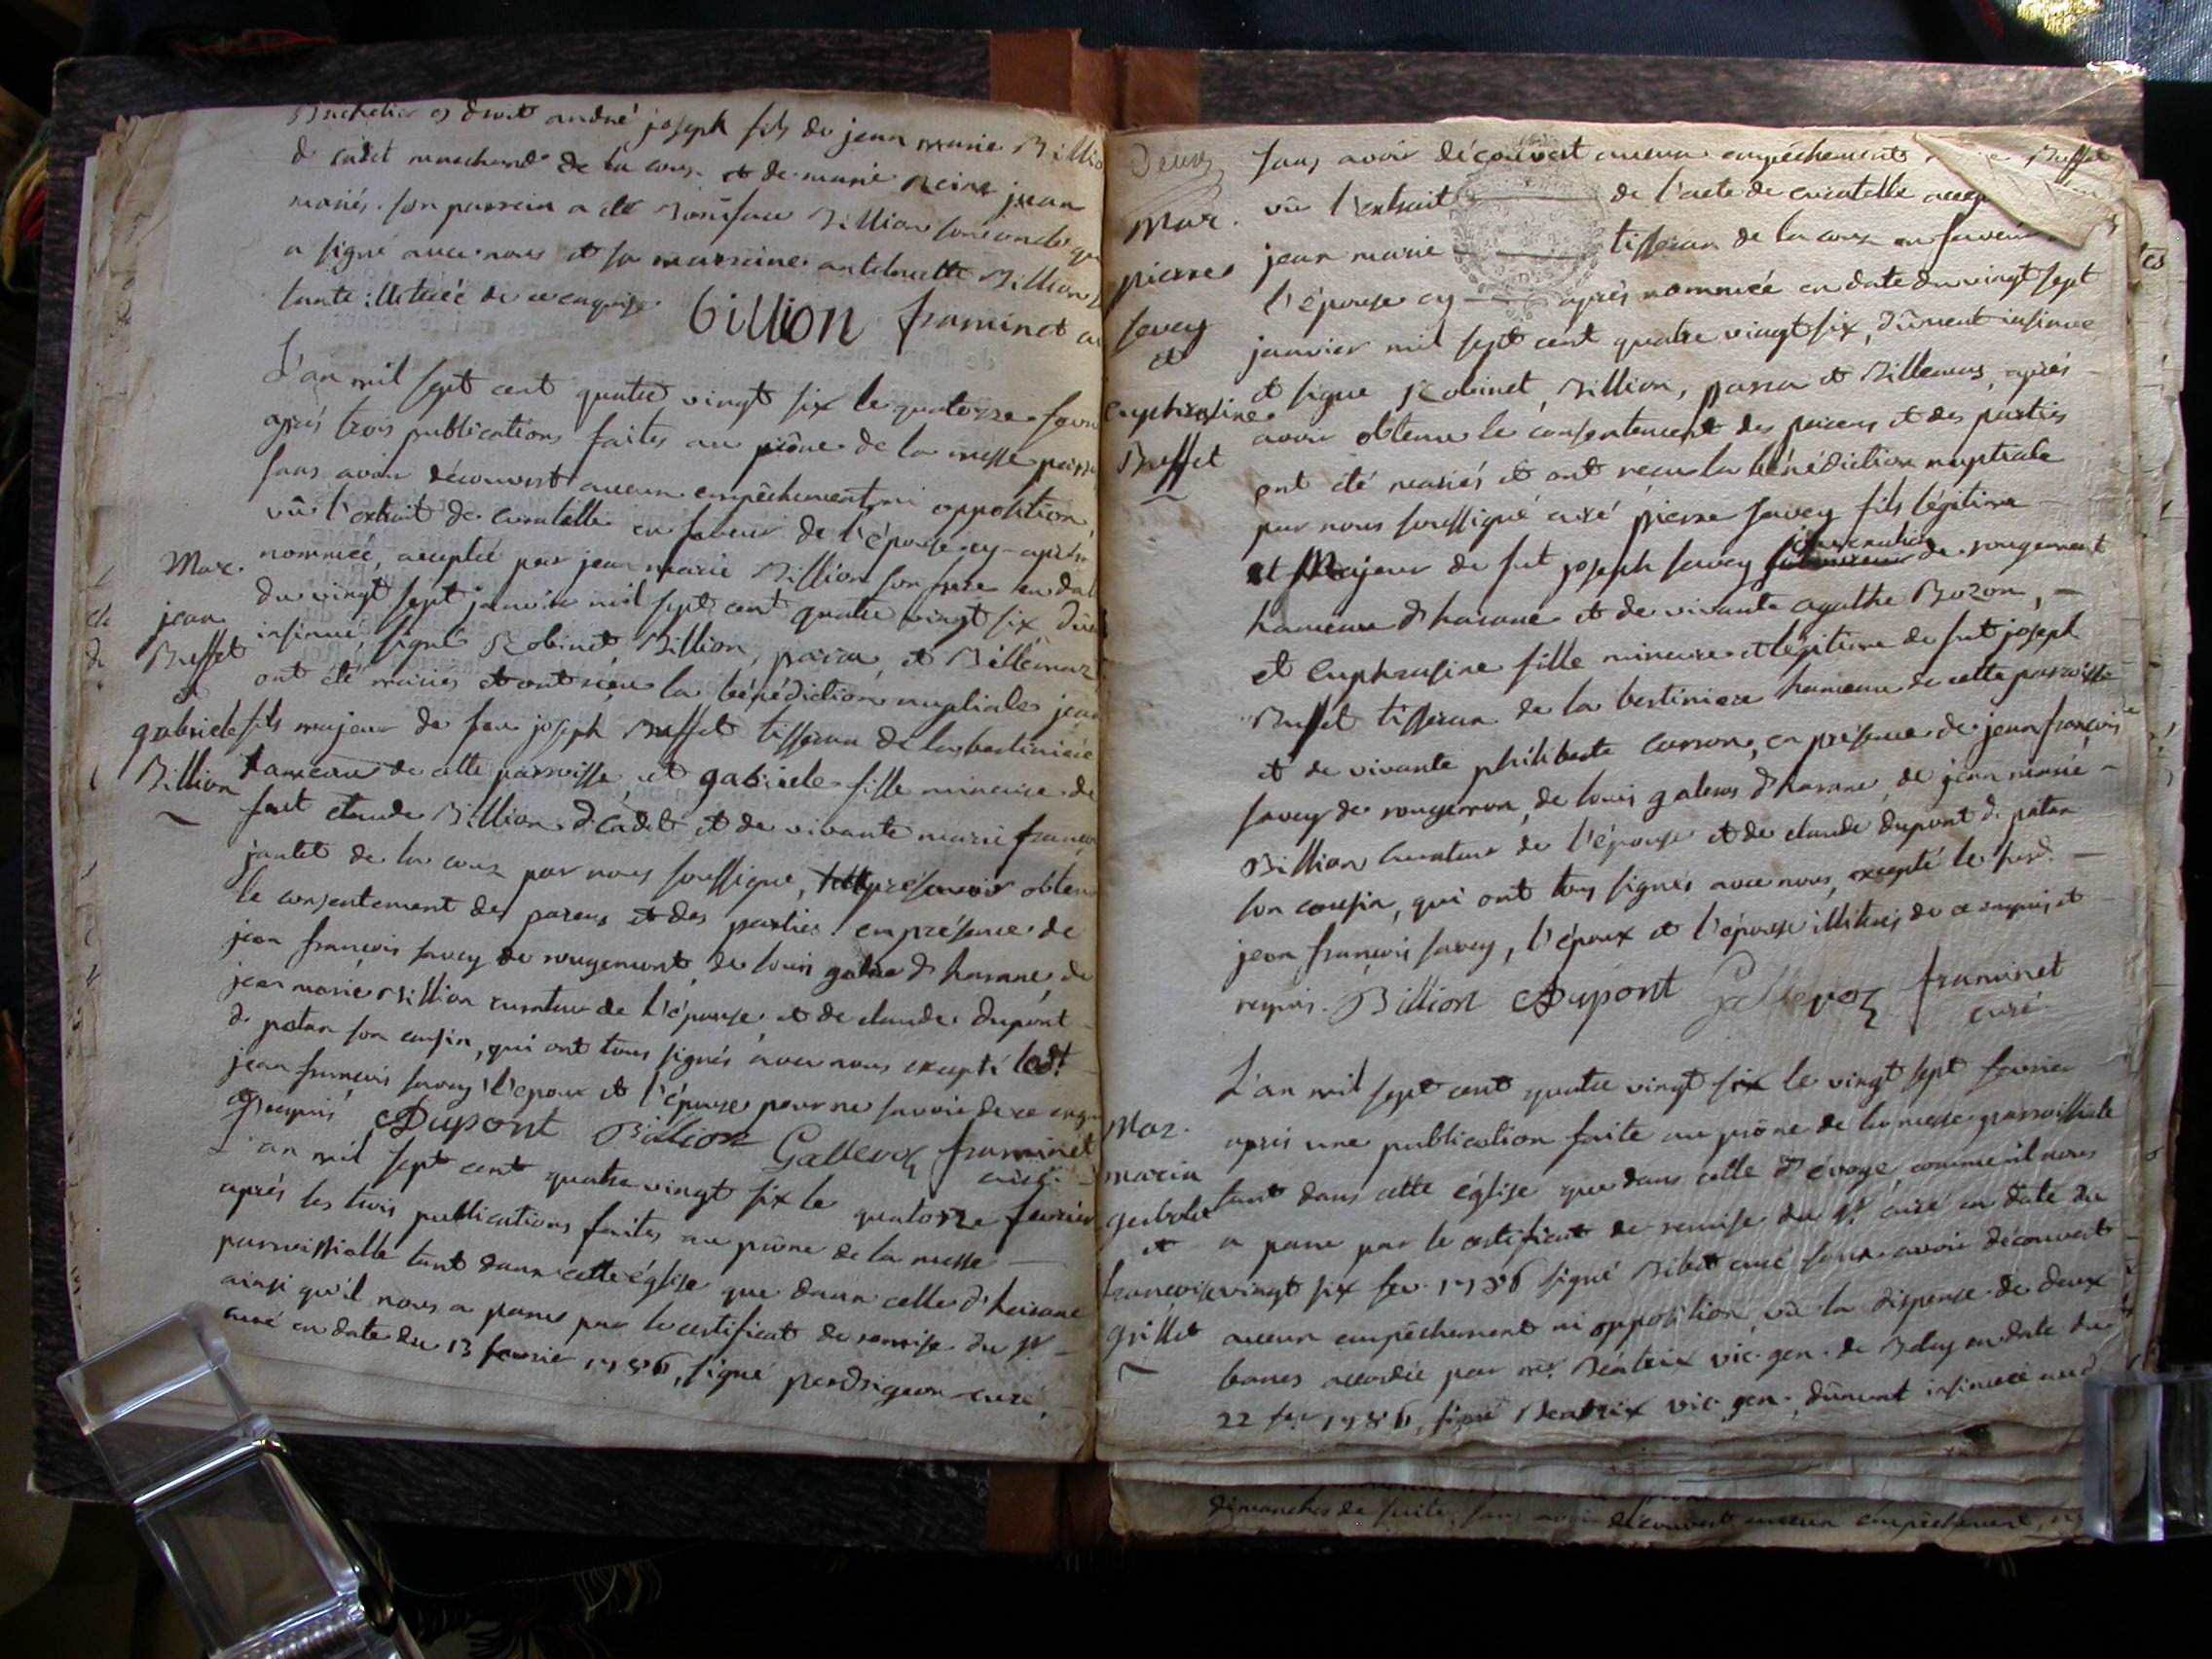 Bachelier es droit andré joseph fils de jean marie Billio
d cadet marchand de la cour et de marie Reine jean
mariés. son parrein a été Boniface Billion son oncle qu
a signé avec nous et sa marreine antelmette Billion
tante illiterée de ce enquise. billion framinet cu
L'an mil sept cent quatre vingt six le quatorze fevr
après trois publications faites au prône de la messe paroiss
sans avoir découvert aucun empêchement ni opposition,
vû l'extrait de curatelle en faveur de l'épouse cy-après
Mar. nommée, acceptée par jean marie Billion son frere en dat
du vingt sept janvier mil sept cent quatre vingt six dûm
jean insinué, signé Robinet Billion, parra, et Billemaz
Buffet ont été mariés et ont reçu la bénédiction nuptiale jean
et
gabriele fils majeur de feu joseph Buffet tisseran de la bertiniere
Billion hameau de cette paroisse, et gabriele fille mineure de
fut claude Billion d. cadet et de vivante marie franço
jantet de la cour par nous soussigné, après avoir obtenu
le consentement des parens et des parties. en présence de
jean françois savey de rougemont, de louis galева d'harane, de
jean marie Billion curateur de l'épouse, et de claude dupont
d. patan son cousin, qui ont tous signés avec nous excepté led.t
jean françois savey l'epoux et l'épouse pour ne savoir de ce enqu
et requis Dupont Billion Gallevoz framinet
curé.
L'an mil sept cent quatre vingt six le quatorze fevrier
après les trois publications faites au prône de la messe
parroissialle tant dans cette église que dans celle d'heirane
ainsi qu'il nous a paru par le certificat de remise du Sr.
curé en date du 13 fevrier 1786, signé perdrigeon curé,
Deux sans avoir découvert aucun empêchements Buffet
Mar. vû l'extrait de l'acte de curatelle
pierre jean marie tisseran de la cour en faveur
savey l'épouse cy après nommée en date du vingt sept
et janvier mil sept cent quatre vingt six, dûment insinué
euphrosine et signé Robinet, Billion, parra et Billemaz, après
Buffet avoir obtenu le consentement des parens et des parties
ont été mariés et ont reçu la bénédiction nuptiale
par nous soussigné curé pierre savey fils légitime
et Majeur de fut joseph savey de rougemont
hameau d'harane et de vivante agathe Bozon,
et euphrasine fille mineure et légitime de fut joseph
Buffet tisseran de la bertiniere hameau de cette paroisse
et de vivante philiberte carron, en présence de jean françois
savey de rougemon, de louis galevos d'harane, de jean marie
Billion curateur de l'épouse et de claude dupont d. patan
son cousin, qui ont tous signés avec nous, excepté le susd.
jean françois savey, l'époux et l'épouse illiterés de ce enquis et
requis. Billion Dupont Gallevoz framinet
curé
L'an mil sept cent quatre vingt six le vingt sept fevrier
Mar. après une publication faite au prône de la messe parroissiale
marin tant dans cette église que dans celle d'évoge, comme il nous
gerbolet a paru par le certificat de remise du Sr. curé en date du
et
francoise vingt six fev. 1786 signé Ribet curé sans avoir découvert
grillet aucun empêchement ni opposition, vû la dispense de deux
bancs accordée par mr. Béatrix vic. gen. de Beley en date du
22 fer 1786, signé Beatrix vic. gen., dûment insinuée aud
dimanches de suite, sans avoir découvert aucun empêchement,